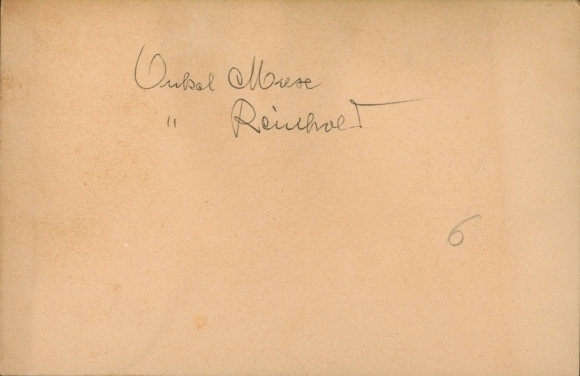 Onkel Muse
" Reinhold
6